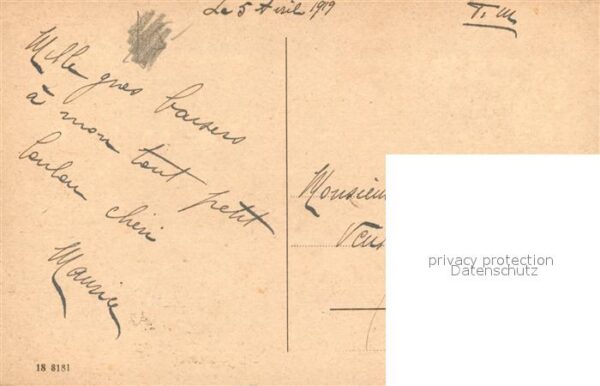 Le 5 Avril 1919
T. M.
Mille gros baisers
à mon tout petit
Loulou chéri
Maurice
Monsieur
privacy protection
Datenschutz
18 8181